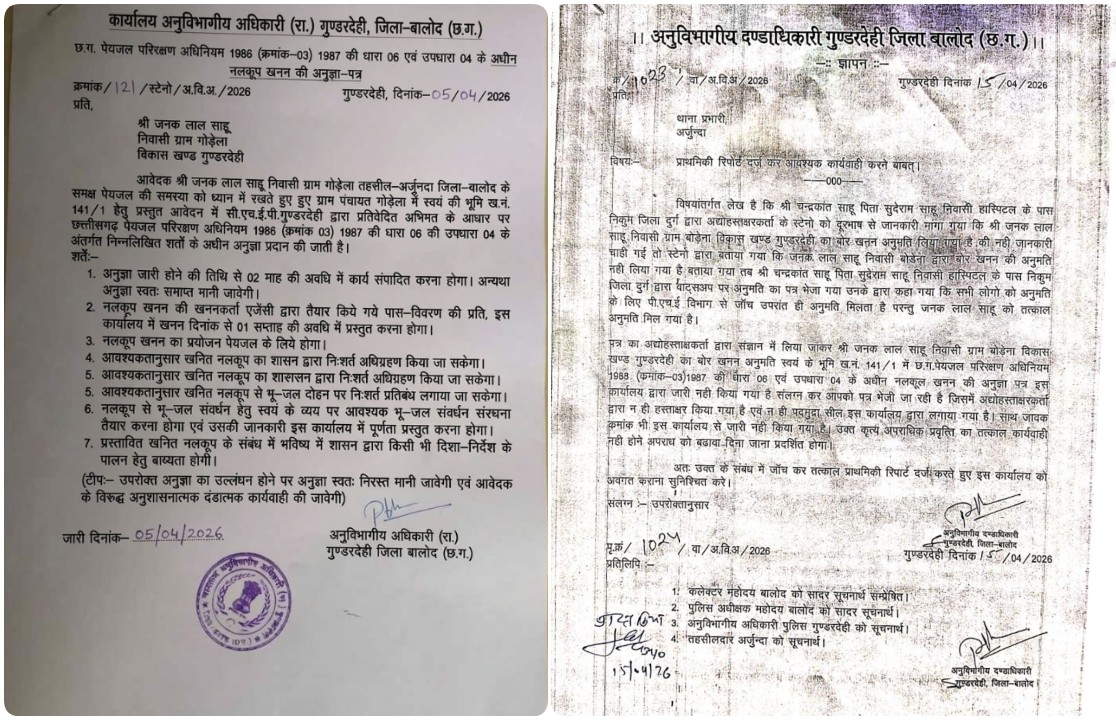 कार्यालय अनुविभागीय अधिकारी (रा.) गुण्डरदेही, जिला-बालोद (छ.ग.)
छ.ग. पेयजल परिरक्षण अधिनियम 1986 (क्रमांक-03) 1987 की धारा 06 एवं उपधारा 04 के अधीन
नलकूप खनन की अनुज्ञा-पत्र
क्रमांक/121/स्टेनो/अ.वि.अ./2026 गुण्डरदेही, दिनांक-05/04/2026
प्रति,
श्री जनक लाल साहू
निवासी ग्राम गोड़ेला
विकास खण्ड गुण्डरदेही
आवेदक श्री जनक लाल साहू निवासी ग्राम गोड़ेला तहसील-अर्जुनदा जिला-बालोद के
समक्ष पेयजल की समस्या को ध्यान में रखते हुए हुए ग्राम पंचायत गोड़ेला में स्वयं की भूमि ख.नं.
141/1 हेतु प्रस्तुत आवेदन में सी.एच.ई.पी.गुण्डरदेही द्वारा प्रतिवेदित अभिमत के आधार पर
छत्तीसगढ़ पेयजल परिरक्षण अधिनियम 1986 (क्रमांक 03) 1987 की धारा 06 की उपधारा 04 के
अंतर्गत निम्नलिखित शर्तो के अधीन अनुज्ञा प्रदान की जाती है।
शर्तेः-
1. अनुज्ञा जारी होने की तिथि से 02 माह की अवधि में कार्य संपादित करना होगा। अन्यथा
अनुज्ञा स्वतः समाप्त मानी जावेगी।
2. नलकूप खनन की खननकर्ता एजेंसी द्वारा तैयार किये गये पास-विवरण की प्रति, इस
कार्यालय में खनन दिनांक से 01 सप्ताह की अवधि में प्रस्तुत करना होगा।
3. नलकूप खनन का प्रयोजन पेयजल के लिये होगा।
4. आवश्यकतानुसार खनित नलकूप का शासन द्वारा निःशर्त अधिग्रहण किया जा सकेगा।
5. आवश्यकतानुसार खनित नलकूप का शासासन द्वारा निःशर्त अधिग्रहण किया जा सकेगा।
5. आवश्यकतानुसार खनित नलकूप से भू-जल दोहन पर निःशर्त प्रतिबंध लगाया जा सकेगा।
6. नलकूप से भू-जल संवर्धन हेतु स्वयं के व्यय पर आवश्यक भू-जल संवर्धन संरचना
तैयार करना होगा एवं उसकी जानकारी इस कार्यालय में पूर्णता प्रस्तुत करना होगा।
7. प्रस्तावित खनित नलकूप के संबंध में भविष्य में शासन द्वारा किसी भी दिशा-निर्देश के
पालन हेतु बाध्यता होगी।
(टीपः- उपरोक्त अनुज्ञा का उल्लंघन होने पर अनुज्ञा स्वतः निरस्त मानी जावेगी एवं आवेदक
के विरुद्ध अनुशासनात्मक दंडात्मक कार्यवाही की जावेगी)
जारी दिनांक- 05/04/2026
अनुविभागीय अधिकारी (रा.)
गुण्डरदेही जिला बालोद (छ.ग.)
।। अनुविभागीय दण्डाधिकारी गुण्डरदेही जिला बालोद (छ.ग.)।।
-:: ज्ञापन ::-
क्र/1023/वा/अ.वि.अ/2026 गुण्डरदेही दिनांक 15/04/2026
प्रति,
थाना प्रभारी,
अर्जुन्दा
विषयः- प्राथमिकी रिपोर्ट दर्ज कर आवश्यक कार्यवाही करने बाबत्।
-----000-----
विषयांतर्गत लेख है कि श्री चन्द्रकांत साहू पिता सुदेराम साहू निवासी हास्पिटल के पास
निकुम जिला दुर्ग द्वारा अद्योहस्ताक्षरकर्ता के स्टेनो को दूरभाष से जानकारी मांगा गया कि श्री जनक लाल
साहू निवासी ग्राम बोड़ेना विकास खण्ड गुण्डरदेही का बोर खनन अनुमति लिया गया है की नही जानकारी
चाही गई तो स्टेनो द्वारा बताया गया कि जनक लाल साहू निवासी बोडेना द्वारा बोर खनन की अनुमति
नही लिया गया है बताया गया तब श्री चन्द्रकांत साहू पिता सुदेराम साहू निवासी हास्पिटल के पास निकुम
जिला दुर्ग द्वारा वाट्सअप पर अनुमति का पत्र भेजा गया उनके द्वारा कहा गया कि सभी लोगो को अनुमति
के लिए पी.एच.ई विभाग से जॉच उपरांत ही अनुमति मिलता है परन्तु जनक लाल साहू को तत्काल
अनुमति मिल गया है।
पत्र का अद्योहस्ताक्षरकर्ता द्वारा संज्ञान में लिया जाकर श्री जनक लाल साहू निवासी ग्राम बोडेना विकास
खण्ड गुण्डरदेही का बोर खनन अनुमति स्वयं के भूमि ख.नं. 141/1 में छ.ग.पेयजल परिरक्षण अधिनियम
1988 (कमांक-03)1987 की धारा 06 एवं उपधारा 04 के अधीन नलकूल खनन की अनुज्ञा पत्र इस
कार्यालय द्वारा जारी नही किया गया है संलग्न कर आपको पत्र भेजी जा रही है जिसमें अद्योहस्ताक्षरकर्ता
द्वारा न ही हस्ताक्षर किया गया है एवं न ही पदमुद्रा सील इस कार्यालय द्वारा लगाया गया है। साथ जावक
कमांक भी इस कार्यालय से जारी नही किया गया है। उक्त कृत्य अपराधिक प्रवृत्ति का तत्काल कार्यवाही
नही होने अपराध को बढावा दिना जाना प्रदर्शित होगा।
अतः उक्त के संबंध में जॉच कर तत्काल प्राथमिकी रिपोर्ट दर्ज करते हुए इस कार्यालय को
अवगत कराना सुनिश्चित करे।
संलग्न :- उपरोक्तानुसार
अनुविभागीय दण्डाधिकारी
गुण्डरदेही, जिला-बालोद
पृ.क्र/ 1024 / वा/अ.वि.अ/2026 गुण्डरदेही दिनांक 15/04/2026
प्रतिलिपि :-
1. कलेक्टर महोदय बालोद को सादर सूचनार्थ सम्प्रेषित।
2. पुलिस अधीक्षक महोदय बालोद को सादर सूचनार्थ।
3. अनुविभागीय अधिकारी पुलिस गुण्डरदेही को सूचनार्थ।
4. तहसीलदार अर्जुन्दा को सूचनार्थ।
15/04/26
अनुविभागीय दण्डाधिकारी
गुण्डरदेही, जिला-बालोद